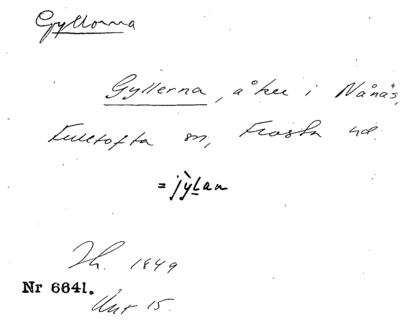 Gyllorna
Gyllerna, åker i Nånäs,
Fulltofta sn, Frosta hd.
= jỳLan
Th. 1849
Nr 6641.
15.